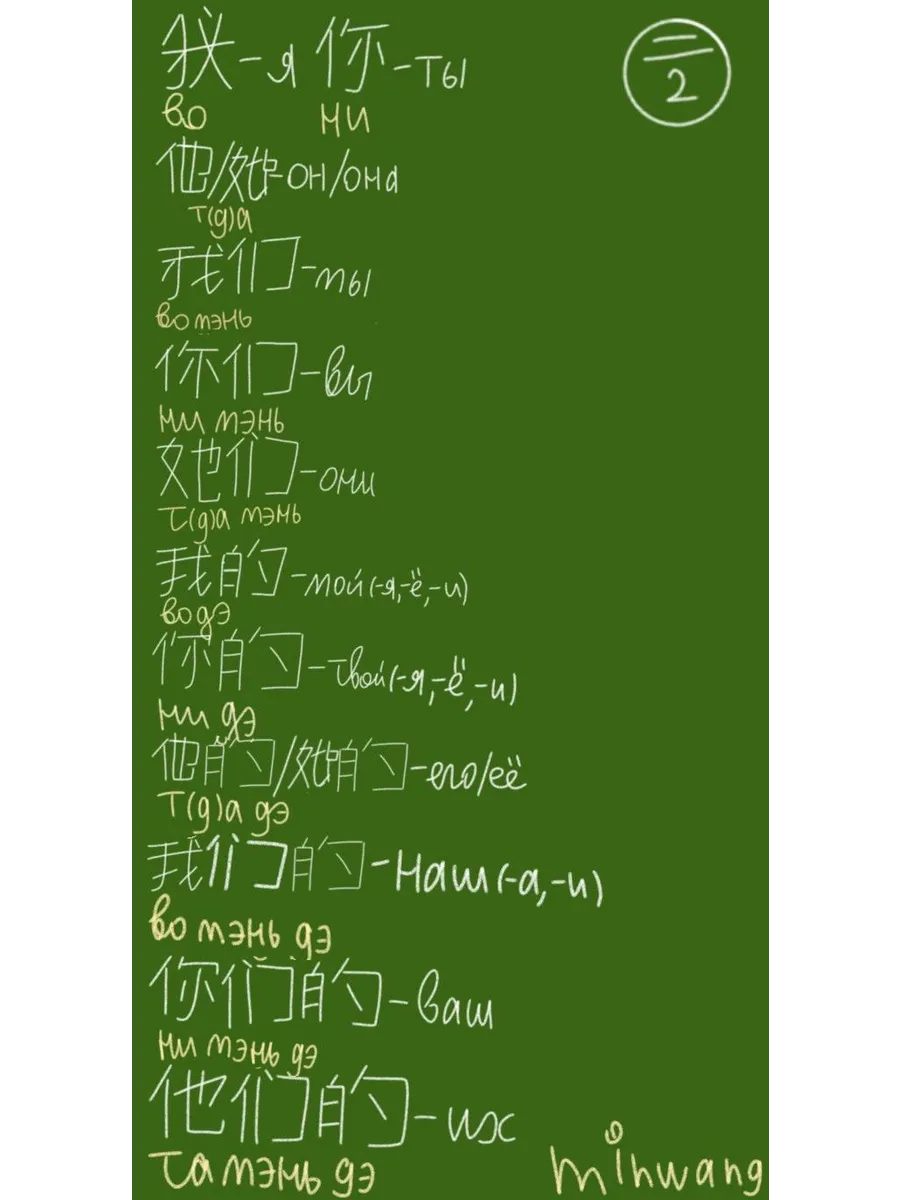 我-я 你-ты
二
2
во ни
他/她-он/она
т(д)а
我们-мы
во мэнь
你们-вы
ни мэнь
她们-они
т(д)а мэнь
我的-мой(-я,-ё,-и)
во дэ
你的-твой(-я,-ё,-и)
ни дэ
他的/她的-его/её
т(д)а дэ
我们的-наш(-а,-и)
во мэнь дэ
你们的-ваш
ни мэнь дэ
他们的-их
та мэнь дэ
minwang